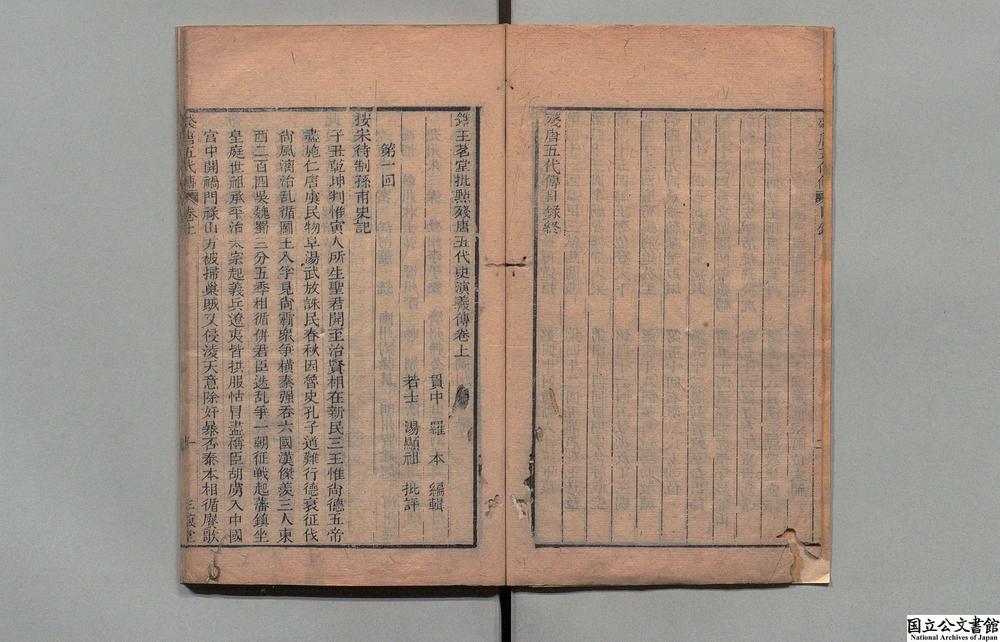 殘唐五代傳目錄終
鐫玉茗堂批點殘唐五代史演義傳卷上
貫中 羅 本 編輯
若士 湯顯祖 批評
第一回
按宋待制孫甫史記
子丑乾坤判惟寅人所生聖君開至治賢相在新民三王惟尚德五帝
盡施仁唐虞民物阜湯武放誅民春秋因魯史孔子道難行德衰征伐
尚風漓治乱循圖王入字見尚霸衆爭橫秦强吞六國漢傑羨三人東
西二百四吳魏蜀三分五季相循併君臣迭乱爭一朝征戦起藩鎮坐
皇庭世祖承平治太宗起義兵遼夷皆拱服怙冒盡稱臣胡虜入中國
宮中開禍門祿山方被掃巢賊又侵淩天意除奸暴否泰本相循賡歌
殘唐五代傳 卷上
一
国立公文書館
National Archives of Japan